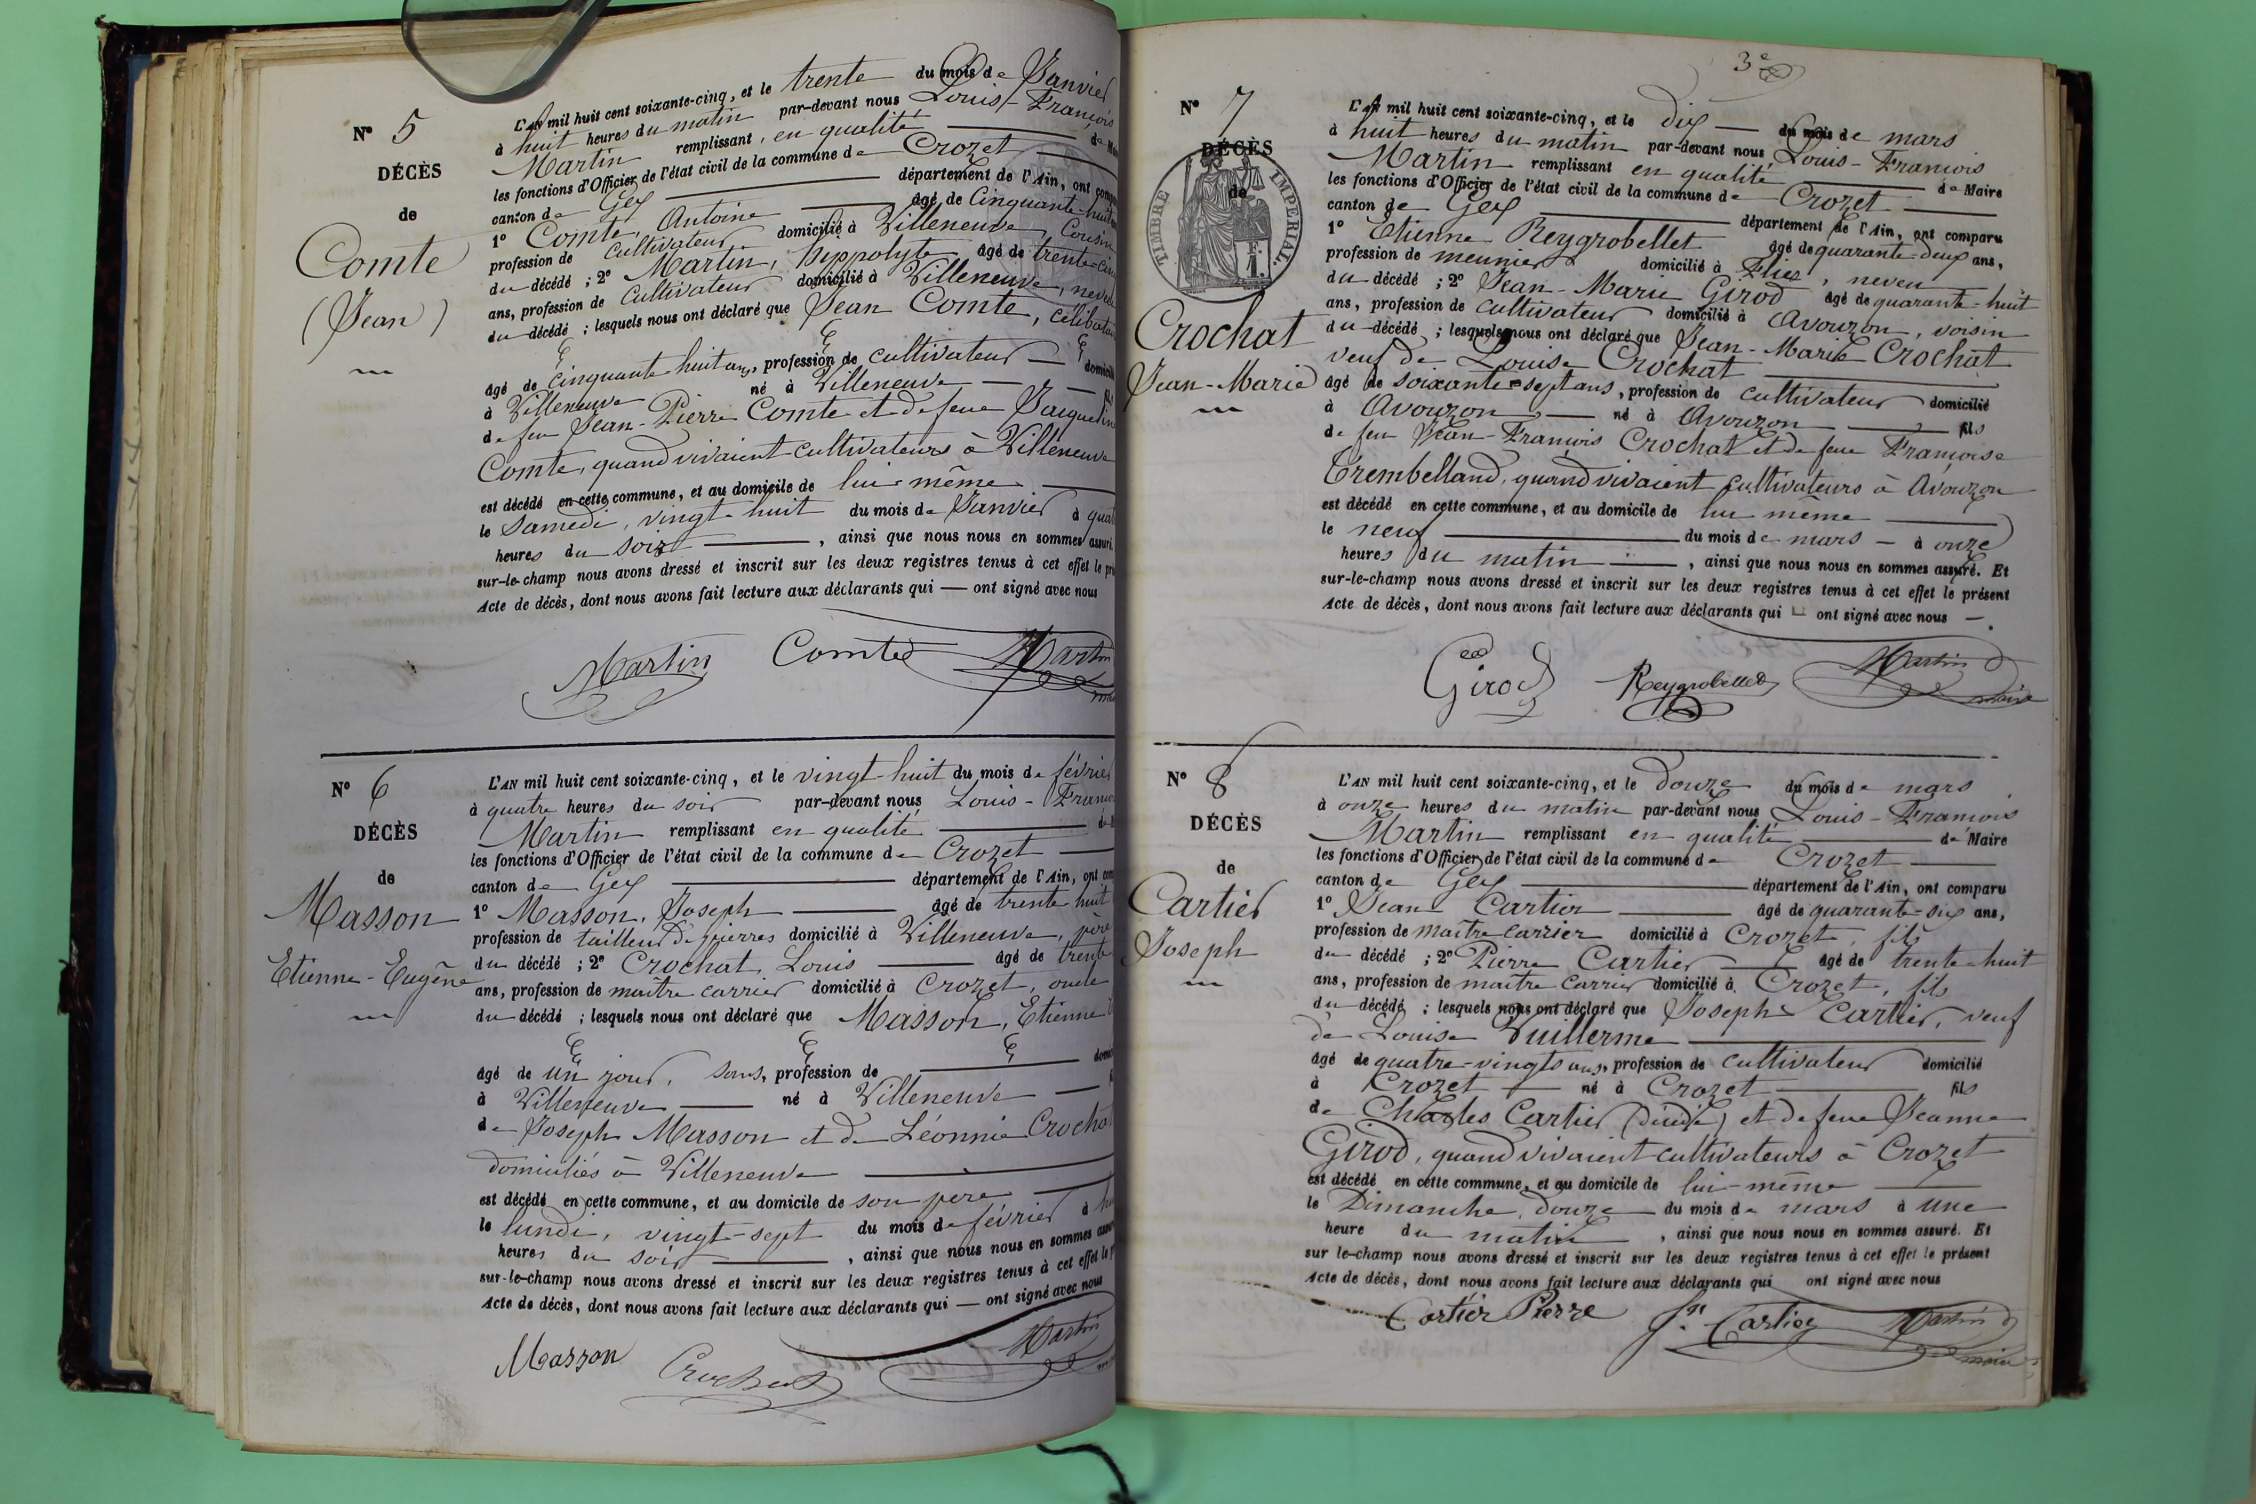 N° 5
DÉCÈS
de
Comte
(Jean)
L'AN mil huit cent soixante-cinq, et le trente du mois de Janvier
à huit heures du matin par-devant nous Louis-François
Martin remplissant, en qualité de
les fonctions d'Officier de l'état civil de la commune de Crozet
canton de Gex département de l'Ain, ont
1° Comte, Antoine âgé de Cinquante-huit
profession de cultivateur domicilié à Villeneuve, Cousin
du décédé ; 2° Martin, hyppolyte âgé de trente
ans, profession de cultivateur domicilié à Villeneuve, neveu
du décédé ; lesquels nous ont déclaré que Jean Comte,
âgé de cinquante-huit ans, profession de cultivateur
à Villeneuve né à Villeneuve
de feu Jean-Pierre Comte et de feue
Comte, quand vivaient cultivateurs à Villeneuve
est décédé en cette commune, et au domicile de lui-même
le Samedi, vingt-huit du mois de Janvier à
heures du soir , ainsi que nous nous en sommes assuré.
sur-le-champ nous avons dressé et inscrit sur les deux registres tenus à cet effet le
Acte de décès, dont nous avons fait lecture aux déclarants qui — ont signé avec nous
Martin Comte Martin
N° 6
DÉCÈS
de
Masson
Etienne-Eugène
L'AN mil huit cent soixante-cinq, et le vingt-huit du mois de février
à quatre heures du soir par-devant nous Louis-
Martin remplissant en qualité
les fonctions d'Officier de l'état civil de la commune de Crozet
canton de Gex département de l'Ain, ont
1° Masson, Joseph âgé de trente huit
profession de tailleur de pierres domicilié à Villeneuve, père
du décédé ; 2° Crochat, Louis âgé de trente
ans, profession de maître carrier domicilié à Crozet, oncle
du décédé ; lesquels nous ont déclaré que Masson, Etienne
âgé de un jour, sans, profession de
à Villeneuve né à Villeneuve
de Joseph Masson et de Léonnie
domiciliés à Villeneuve
est décédé en cette commune, et au domicile de son père
le lundi, vingt-sept du mois de février à
heures du soir , ainsi que nous nous en sommes
sur-le-champ nous avons dressé et inscrit sur les deux registres tenus à cet effet le
Acte de décès, dont nous avons fait lecture aux déclarants qui — ont signé avec nous
Masson Crochat Martin
3e
N° 7
DÉCÈS
de
TIMBRE IMPÉRIAL.
Crochat
Jean-Marie
L'AN mil huit cent soixante-cinq, et le dix du mois de mars
à huit heures du matin par-devant nous Louis-François
Martin remplissant en qualité de Maire
les fonctions d'Officier de l'état civil de la commune de Crozet
canton de Gex département de l'Ain, ont comparu
1° Etienne Reygrobellet âgé de quarante-deux ans,
profession de meunier domicilié à , neveu
du décédé ; 2° Jean-Marie Girod âgé de quarante-huit
ans, profession de cultivateur domicilié à Avouzon, voisin
du décédé ; lesquels nous ont déclaré que Jean-Marie Crochat
veuf de Louise Crochat
âgé de soixante-sept ans, profession de cultivateur domicilié
à Avouzon né à Avouzon fils
de feu Jean-François Crochat et de feue Françoise
Trembelland, quand vivaient cultivateurs à Avouzon
est décédé en cette commune, et au domicile de lui même
le neuf du mois de mars — à onze
heures du matin , ainsi que nous nous en sommes assuré. Et
sur-le-champ nous avons dressé et inscrit sur les deux registres tenus à cet effet le présent
Acte de décès, dont nous avons fait lecture aux déclarants qui ont signé avec nous
Girod Reygrobellet Martin
maire
N° 8
DÉCÈS
de
Cartier
Joseph
L'AN mil huit cent soixante-cinq, et le douze du mois de mars
à onze heures du matin par-devant nous Louis-François
Martin remplissant en qualité de Maire
les fonctions d'Officier de l'état civil de la commune de Crozet
canton de Gex département de l'Ain, ont comparu
1° Jean Cartier âgé de quarante-six ans,
profession de maître carrier domicilié à Crozet, fils
du décédé ; 2° Pierre Cartier âgé de trente-huit
ans, profession de maître carrier domicilié à Crozet, fils
du décédé ; lesquels nous ont déclaré que Joseph Cartier, veuf
de Louise Vuillerme
âgé de quatre-vingts ans, profession de cultivateur domicilié
à Crozet né à Crozet fils
de Charles Cartier (décédé) et de feue Jeanne
Girod, quand vivaient cultivateurs à Crozet
est décédé en cette commune, et au domicile de lui-même
le Dimanche, douze du mois de mars à une
heure du matin , ainsi que nous nous en sommes assuré. Et
sur le-champ nous avons dressé et inscrit sur les deux registres tenus à cet effet le présent
Acte de décès, dont nous avons fait lecture aux déclarants qui ont signé avec nous
Cartier Pierre J. Cartier Martin
maire